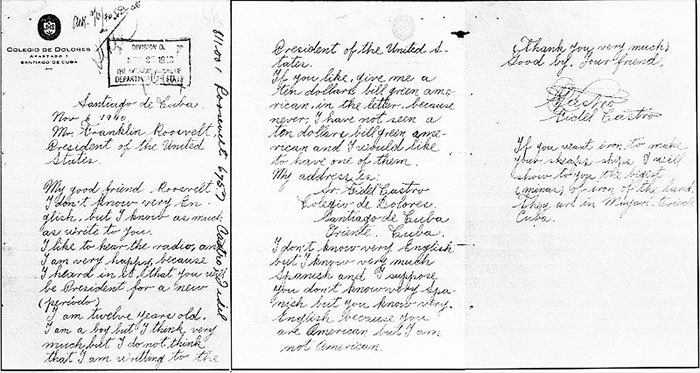 COLEGIO DE DOLORES
APARTADO 1
SANTIAGO DE CUBA
DIVISION O
DEPARTMENT OF STATE
811.001 Roosevelt 6757 Castro, Fidel
Santiago de Cuba.
Nov 6 1940.
Mr Franklin Roosvelt,
President of the United
States.
My good friend Roosvelt
I don't know very En-
glish, but I know as much
as write to you.
I like to hear the radio, and
I am very happy, because
I heard in it, that you will
be President for a new
(periodo)
I am twelve years old.
I am a boy but I think very
much but I do not think
that I am writting to the
President of the United S-
tates.
If you like, give me a
ten dollars bill green ame-
rican, in the letter, because
never, I have not seen a
ten dollars bill green ame-
rican and I would like
to have one of them.
My address is:
Sr Fidel Castro
Colegio de Dolores.
Santiago de Cuba
Oriente. Cuba.
I don't know very English
but I know very much
Spanish and I suppose
you don't know very Spa-
nish but you know very
English because you
are American but I am
not American.
(Thank you very much)
Good by. Your friend,
Castro
Fidel Castro
If you want iron to make
your ships I will
show to you the bigest
(minas) of iron of the land.
They are in Mayari Oriente
Cuba.